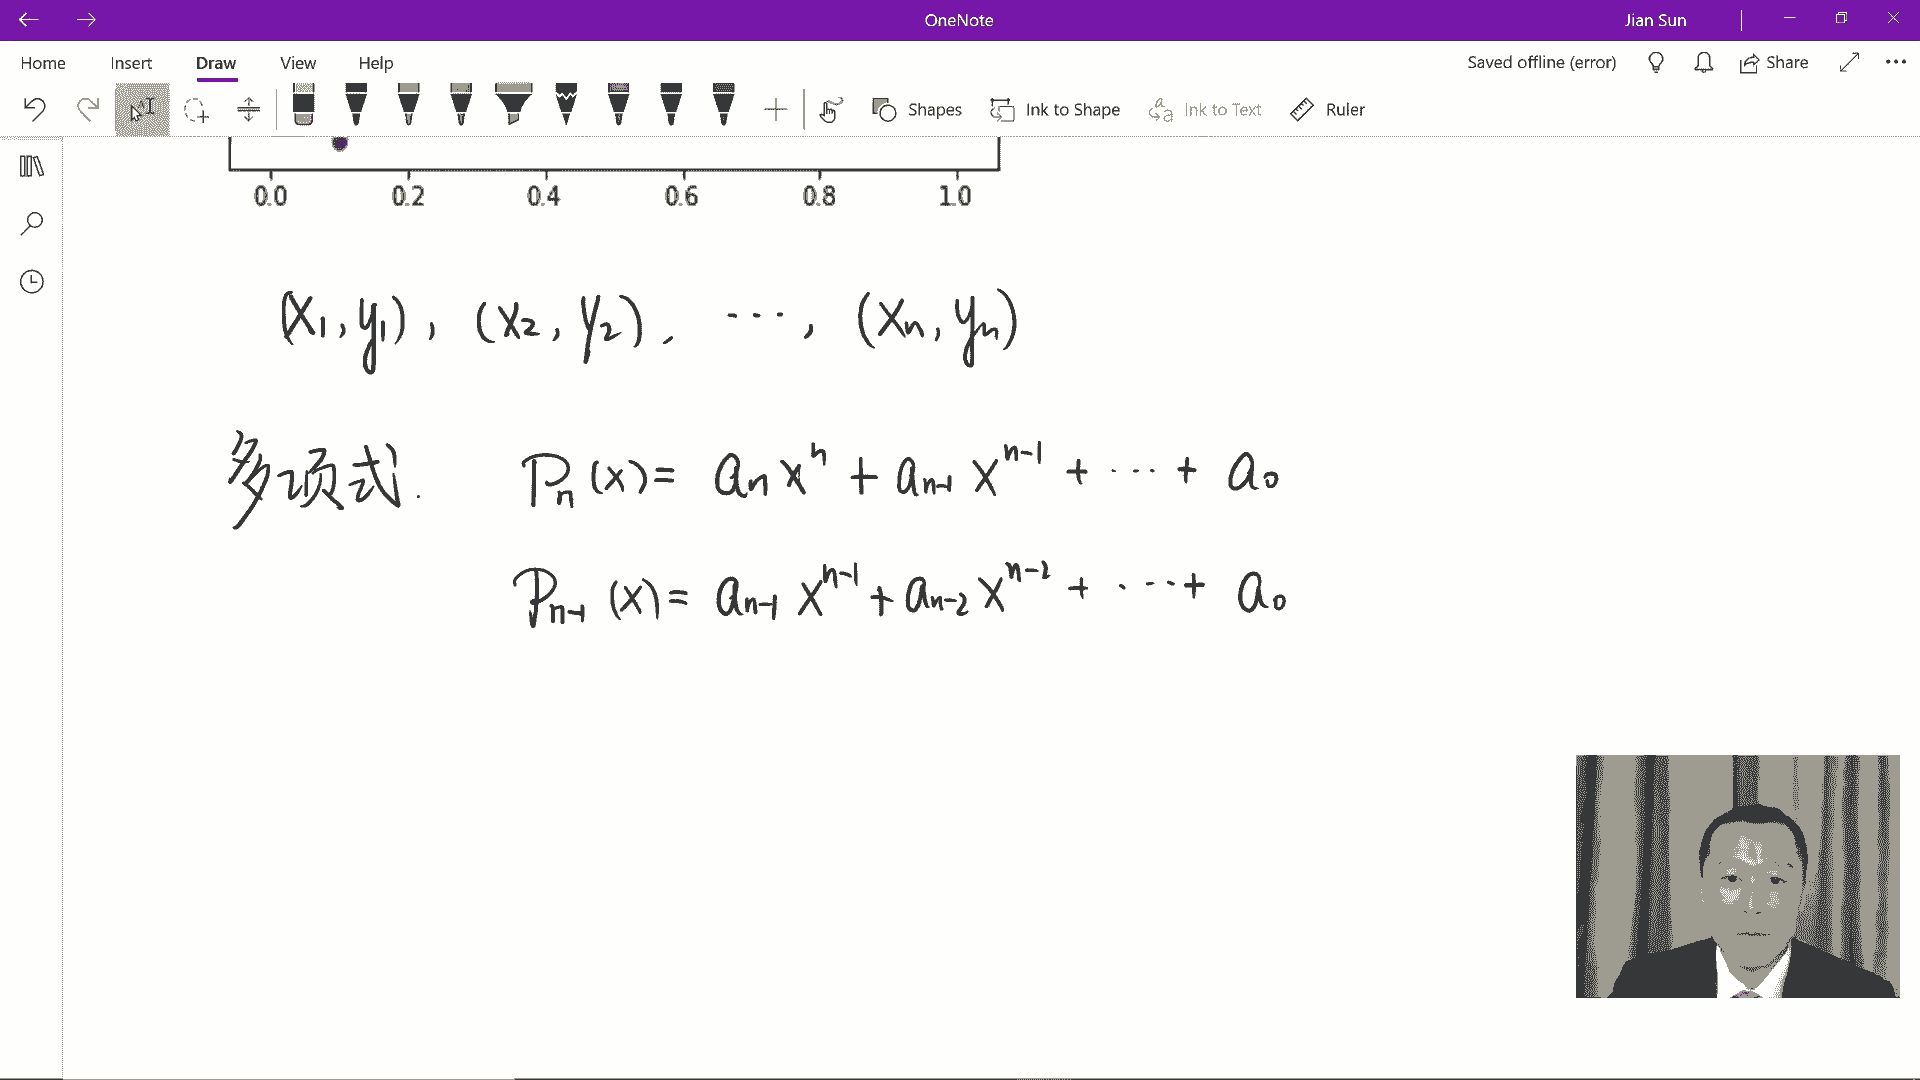 OneNote
Jian Sun
Home Insert Draw View Help
Saved offline (error) Share
Shapes Ink to Shape Ink to Text Ruler
0.0 0.2 0.4 0.6 0.8 1.0
(x₁, y₁), (x₂, y₂), ⋯, (xₙ, yₙ)
多项式. Pₙ(x) = aₙxⁿ + aₙ₋₁xⁿ⁻¹ + ⋯ + a₀
Pₙ₋₁(x) = aₙ₋₁xⁿ⁻¹ + aₙ₋₂xⁿ⁻² + ⋯ + a₀